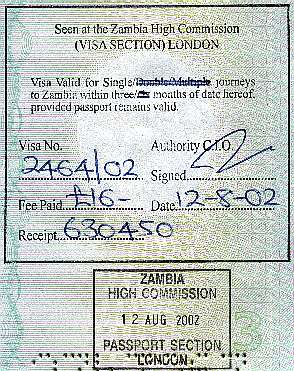 Seen at the Zambia High Commission
(VISA SECTION) LONDON
Visa Valid for Single/Double/Multiple journeys
to Zambia within three/ months of date hereof,
provided passport remains valid.
Visa No. Authority C.I.O.
2464/02 Signed
Fee Paid £16- Date 12-8-02
Receipt 630450
ZAMBIA
HIGH COMMISSION
12 AUG 2002
PASSPORT SECTION
LONDON